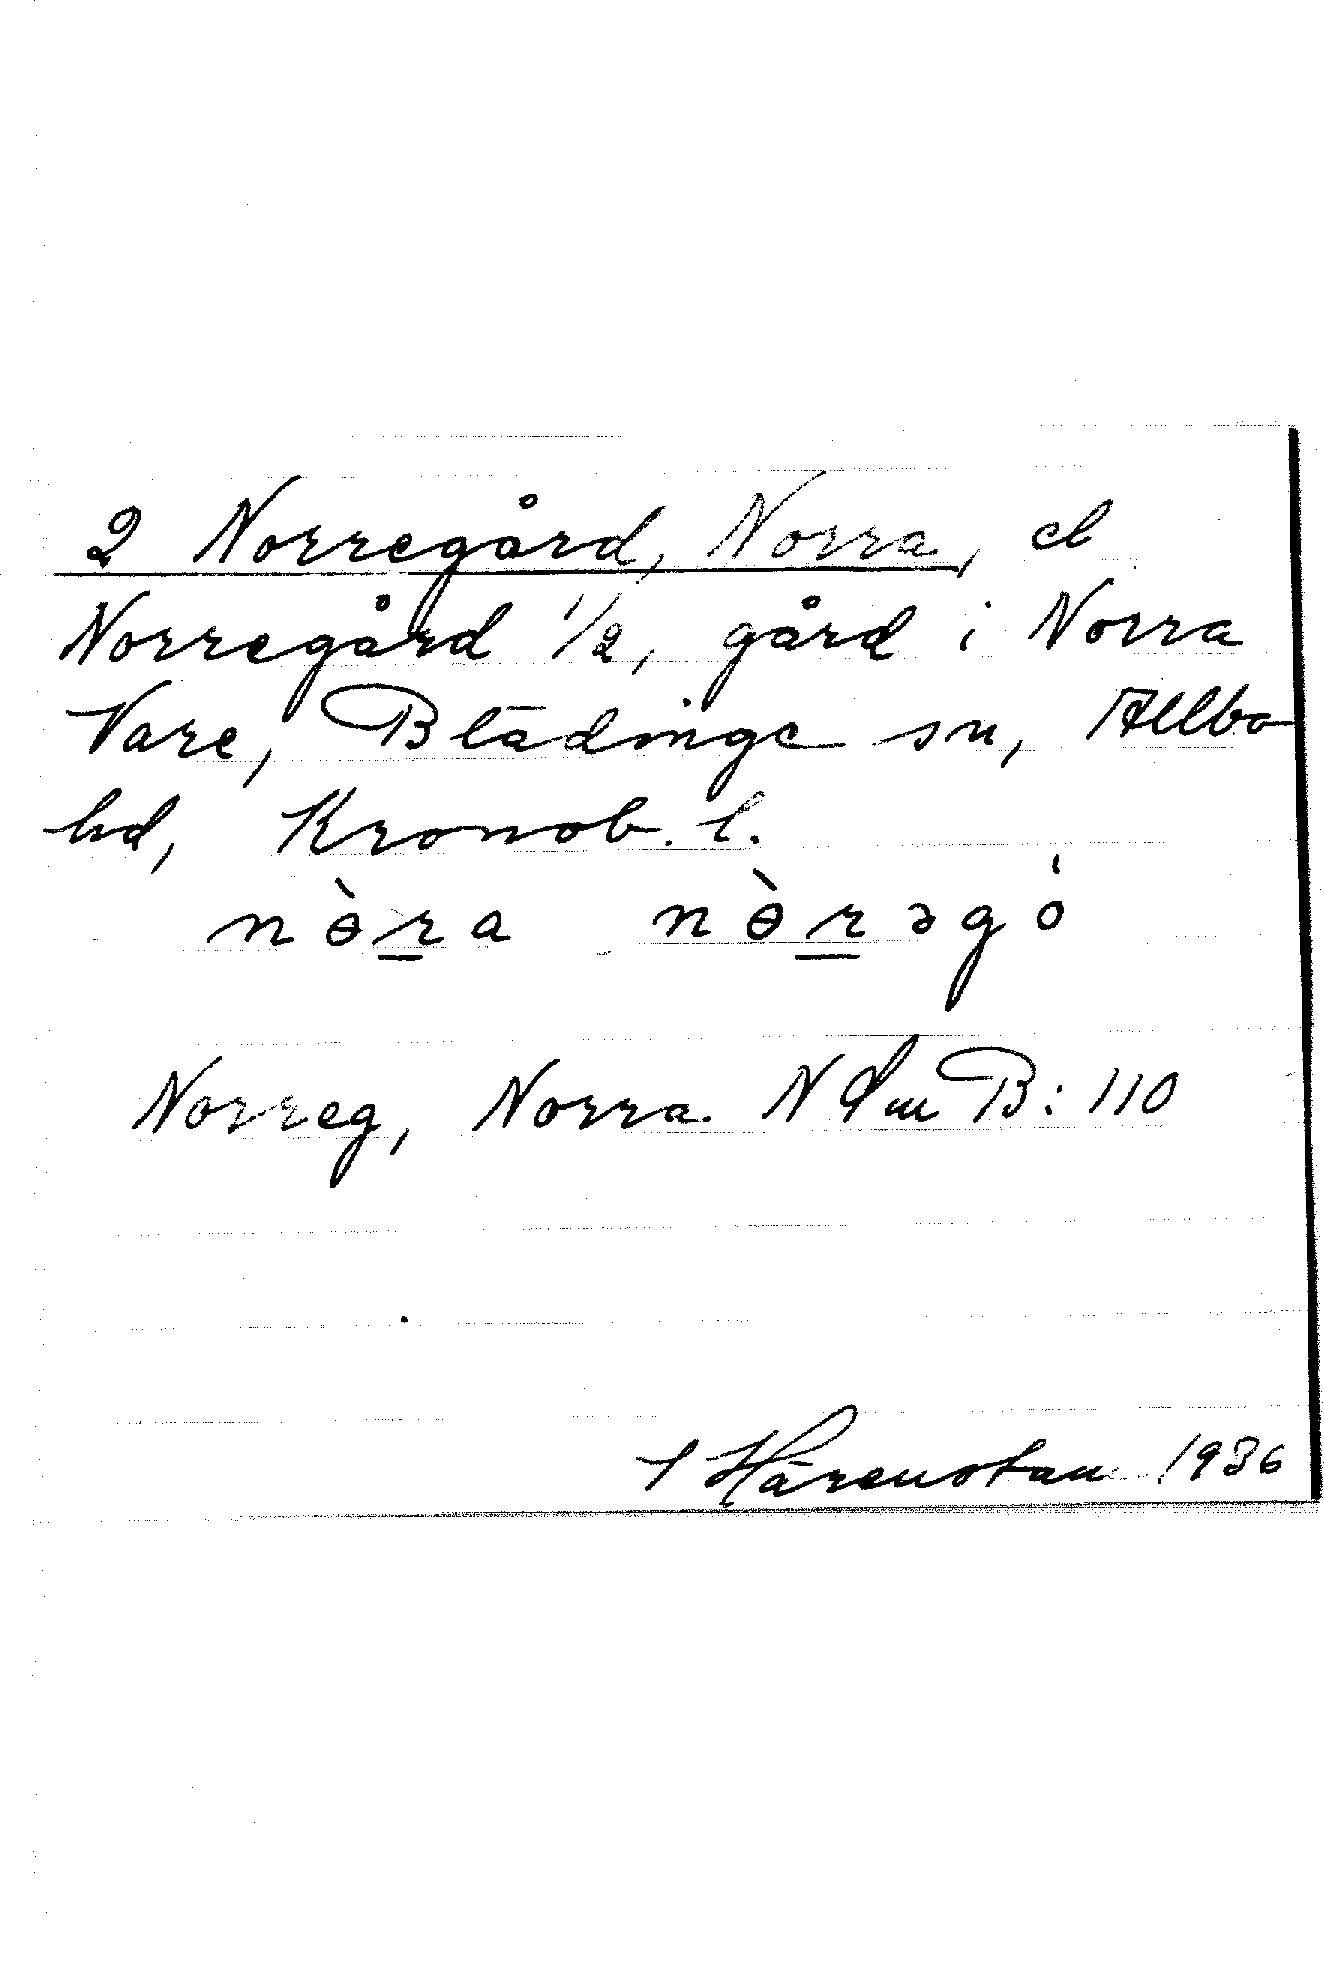 2 Norregård, Norra, el
Norregård 1/2, gård i Norra
Vare, Blädinge sn, Allbo
hd, Kronob. l.
nɵ̀ra nɵ̀rəgó
Norreg, Norra. N Sm B: 110
I Härenstam 1936